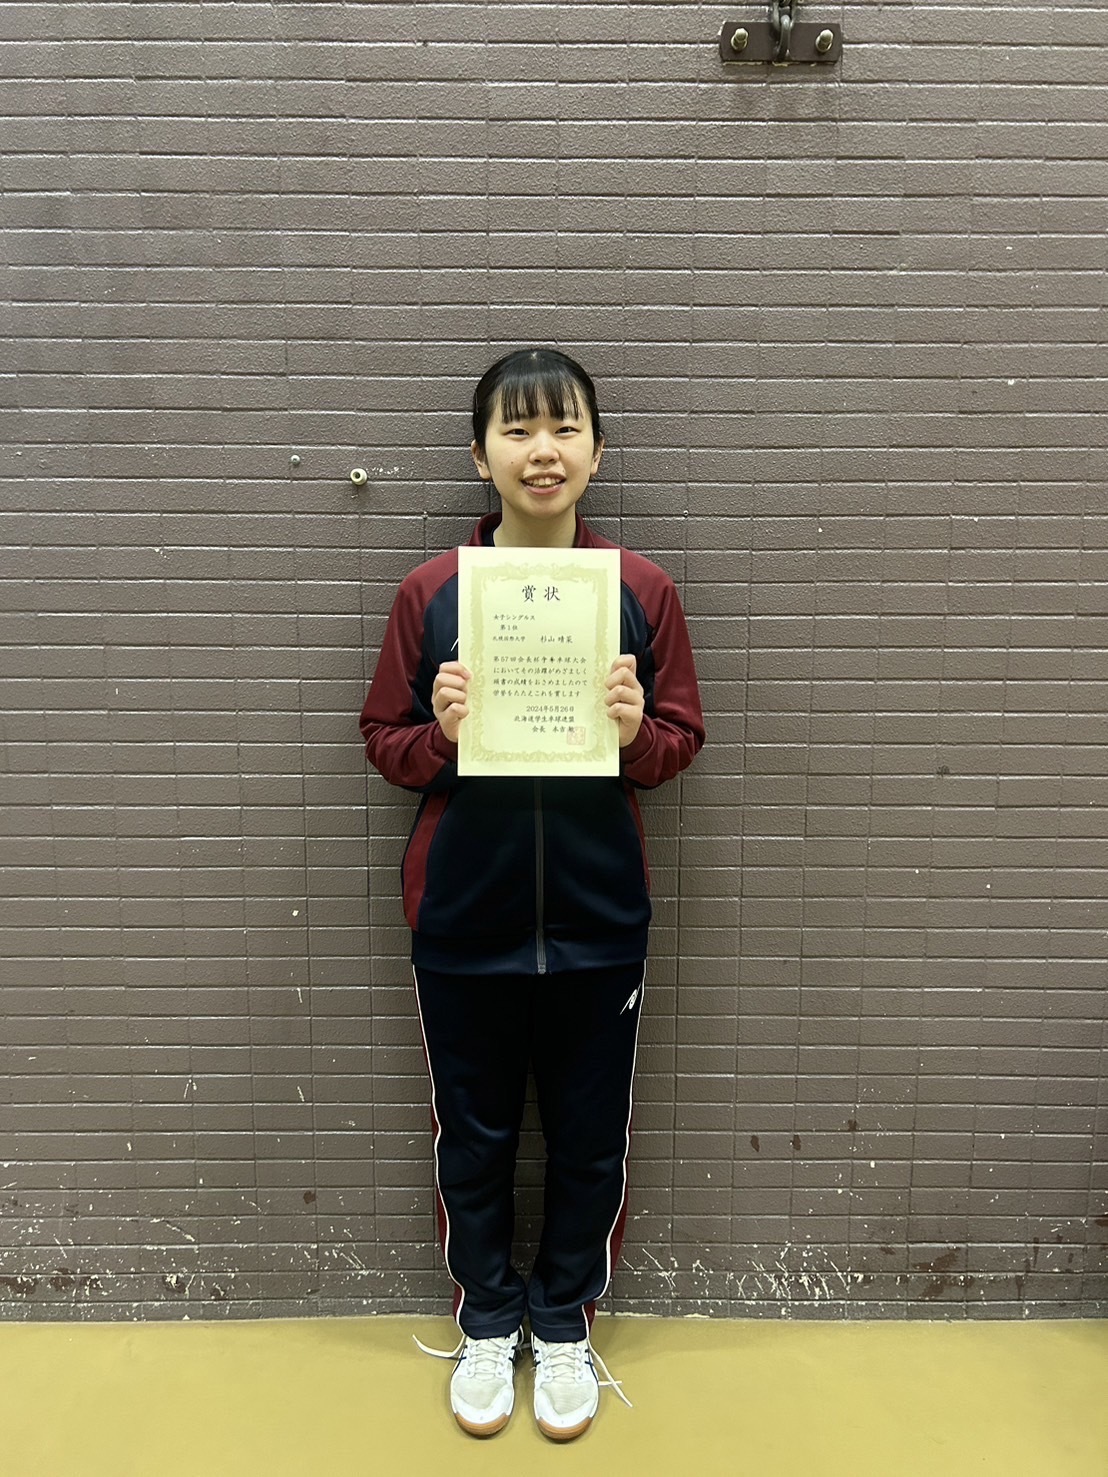 賞状
女子シングルス
第1位
札幌国際大学 杉山 晴菜
第57回会長杯争奪卓球大会
においてその活躍がめざましく
頭書の成績をおさめましたので
栄誉をたたえこれを賞します
2024年5月26日
北海道学生卓球連盟
会長